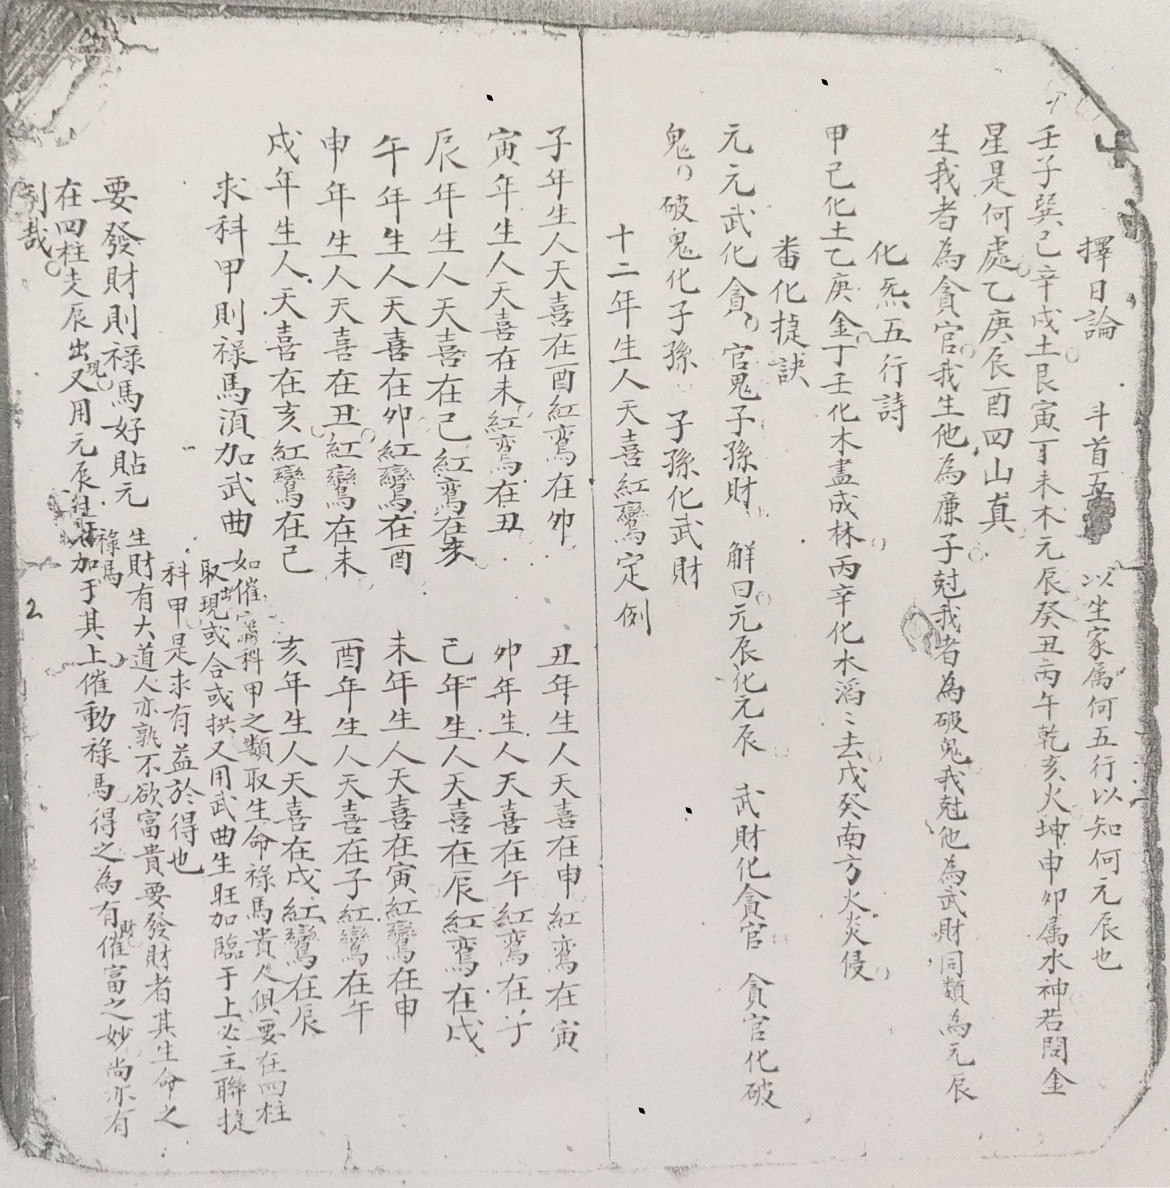 擇日論 斗首五 以生家属何五行以知何元辰也
壬子巽己辛戌土艮寅丁未木元辰癸丑丙午乾亥火坤申卯属水神若問金
星是何處乙庚辰酉四山真
生我者為貪官我生他為廉子尅我者為破鬼我尅他為武財同類為元辰
化炁五行詩
甲己化土乙庚金丁壬化木盡成林丙辛化水滔〻去戊癸南方火炎侵
番化捷訣
元元武化貪官鬼子孫財 解曰元辰化元辰 武財化貪官 貪官化破
鬼破鬼化子孫 子孫化武財
十二年生人天喜紅鸞定例
子年生人天喜在酉紅鸞在卯 丑年生人天喜在申紅鸞在寅
寅年生人天喜在未紅鸞在丑 卯年生人天喜在午紅鸞在子
辰年生人天喜在己紅鸞在亥 己年生人天喜在辰紅鸞在戌
午年生人天喜在卯紅鸞在酉 未年生人天喜在寅紅鸞在申
申年生人天喜在丑紅鸞在未 酉年生人天喜在子紅鸞在午
戌年生人天喜在亥紅鸞在己 亥年生人天喜在戌紅鸞在辰
求科甲則禄馬湏加武曲 如催官科甲之類取生命禄馬貴人俱要在四柱
取出現或合或拱又用武曲生旺加臨于上必主聯捷
科甲是求有益於得也
要發財則禄馬好貼元 生財有大道人亦孰不欲富貴要發財者其生命之
禄馬
在四柱支辰出現又用元辰加于其上催動禄馬得之為有催富之妙尚亦有
財
利哉
2